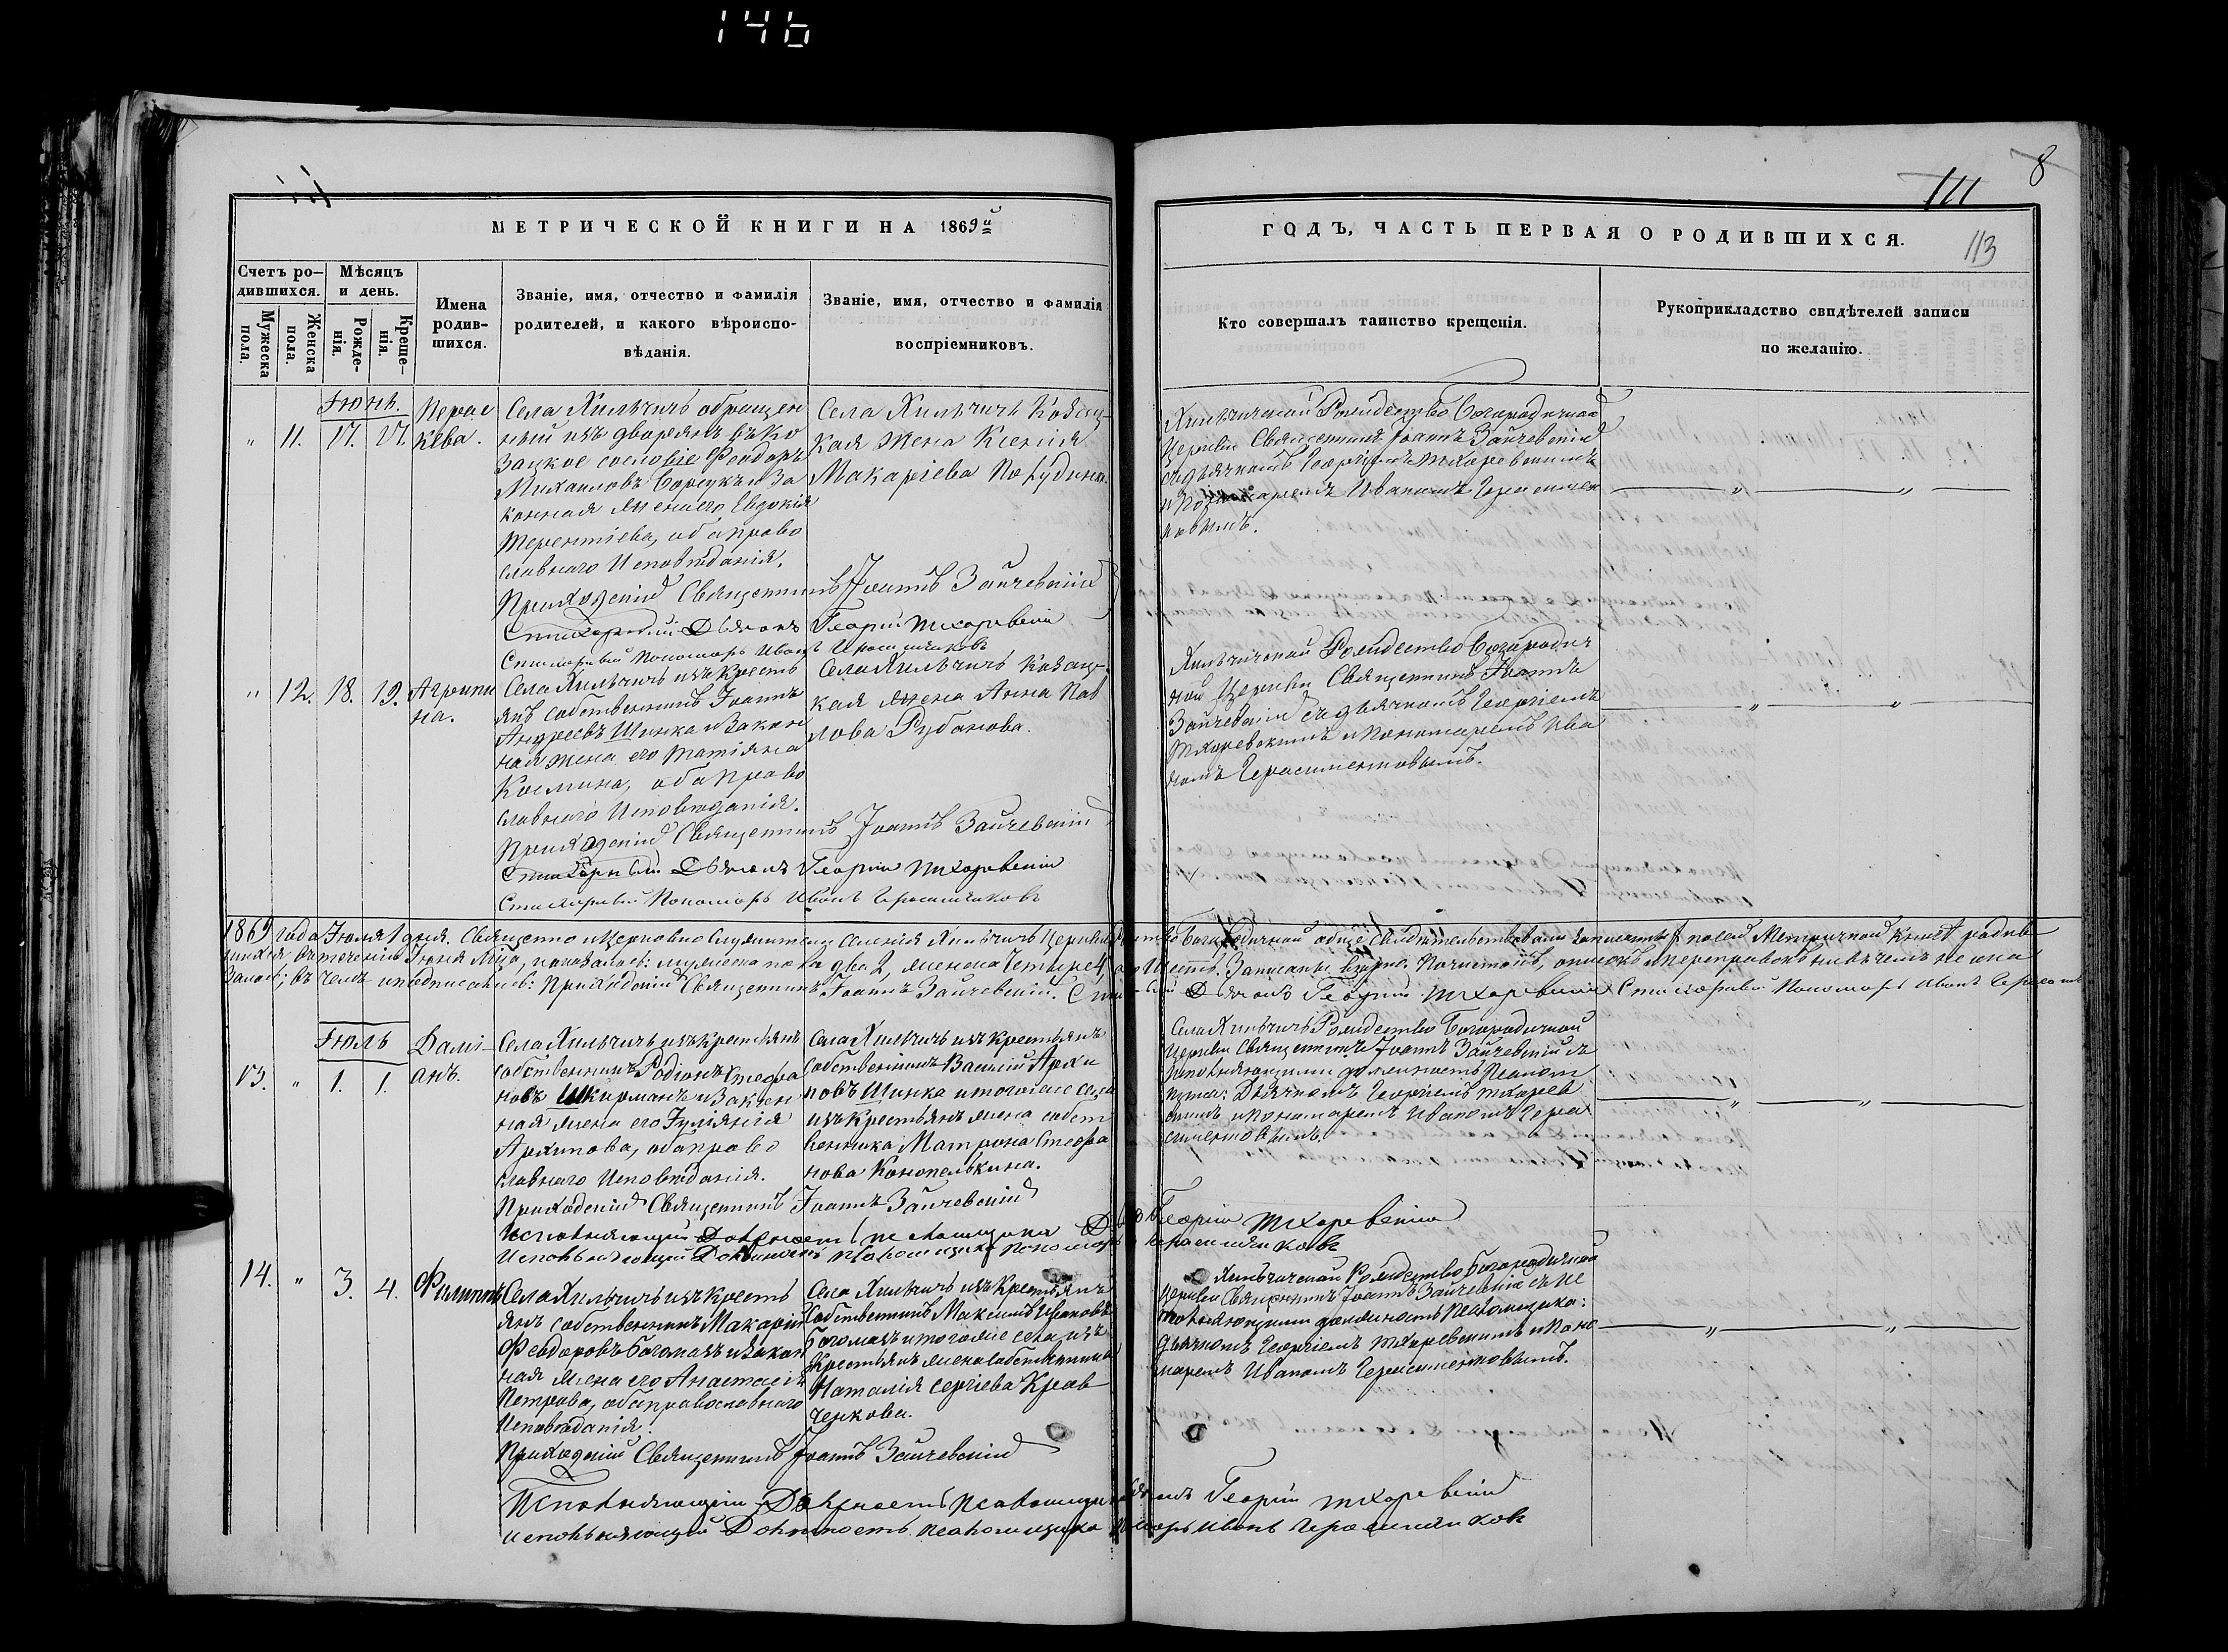 146
111
8
113
МЕТРИЧЕСКОЙ КНИГИ НА 1869й
ГОДЪ, ЧАСТЬ ПЕРВАЯ О РОДИВШИХСЯ.
Счетъ ро-
дившихся.
Мужеска
пола.
Женска
пола.
Мѣсяцъ
и день.
Рожде-
нія.
Креще-
нія.
Имена
родив-
шихся.
Званіе, имя, отчество и фамилія
родителей, и какого вѣроиспо-
вѣданія.
Званіе, имя, отчество и фамилія
воспріемниковъ.
Кто совершалъ таинство крещенія.
Рукоприкладство свидѣтелей записи
по желанію.
Іюнь.
" 11. 17. 17.
Парас
кева.
Села Хильчичъ обращен
ный изъ дворянъ въ Ко
зацкое сословіе Феодоръ
Михаиловъ и За
конная жена его Евдокія
Терентіева, оба право
славнаго Исповѣданія.
Села Хильчичъ Козац-
кая жена Ксенія
Макаріева
Хильчичской Рождество Богородичной
Церкви Священникъ Іоаннъ Зайчевскій
съ дьячкомъ Георгіемъ Тхоревскимъ
и Пономаремъ Иваномъ Герасимен
ковымъ.
Приходскій Священникъ Іоаннъ Зайчевскій
Стихарный Дьячокъ Георгій Тхоревскій
Стихарный Пономарь Иванъ
" 12. 18. 19.
Агрипи
на.
Села Хильчичъ изъ Кресть
янъ собственникъ Іоаннъ
Андреевъ Шинка и Закон
ная жена его Татіяна
Космина, оба право
славнаго Исповѣданія.
Села Хильчичъ Козац-
кая жена Анна Пав
лова Рубанова.
Хильчичской Рождество Богородич
ной Церкви Священникъ Іоаннъ
Зайчевскій съ дьячкомъ Георгіемъ
Тхоревскимъ и Пономаремъ Ива
номъ Герасименковымъ.
Приходскій Священникъ Іоаннъ Зайчевскій
Стихарный Дьячокъ Георгій Тхоревскій
Стихарный Пономарь Иванъ Герасименковъ
1869 года Іюля 1 дня. Священно и Церковно Служители селенія Хильчичъ Церкви Богородичной обще свидѣтельствовали записанныхъ по сей Метрической Книгѣ родив
шихся въ теченіи Іюня м-ца, и оказалось: мужеска пола два 2, женска четыре 4, Шесть. Записаны вѣрно. почистокъ, описокъ и переправокъ ни въ чемъ не ока
залось; въ чемъ и подписались: Приходскій Священникъ Іоаннъ Зайчевскій. Дьячокъ Георгій Тхоревскій Стихарный Пономарь Иванъ
Іюль
13. " 1. 1.
Дамі-
анъ.
Села Хильчичъ изъ Крестьянъ
собственникъ Родіонъ Стефа
новъ Шкирманъ и Закон
ная жена его Іуліянія
Архипова, оба право
славнаго Исповѣданія.
Села Хильчичъ изъ Крестьянъ
собственникъ Василій Архи
повъ Шинка и тогоже села
изъ Крестьянъ жена собст
венника Матрона Стефа
нова Конопелькина.
Села Хильчичъ Рождество Богородичной
Церкви Священникъ Іоаннъ Зайчевскій съ
исполняющими должность Псалом
щика: Дьячкомъ Георгіемъ Тхорев
скимъ и пономаремъ Иваномъ Гера
сименковымъ.
Приходскій Священникъ Іоаннъ Зайчевскій
Исполняющій Должность псаломщика Георгій Тхоревскій
Исполняющій Должность псаломщика Пономарь Герасименковъ
14. " 3. 4.
Филиппъ
Села Хильчичъ изъ Кресть
янъ собственникъ Макарій
Феодоровъ Богомазъ и Закон
ная жена его Анастасія
Петрова, оба православнаго
Исповѣданія.
Села Хильчичъ изъ Крестьянъ
собственникъ Максимъ Ивановъ
Богомазъ и тогоже села изъ
Крестьянъ жена собственника
Наталія Сергіева Крав
ченкова.
Хильчичской Рождество Богородичной
Церкви Священникъ Іоаннъ Зайчевскій съ ис
полняющими должность Псаломщика:
дьячкомъ Георгіемъ Тхоревскимъ и Поно
маремъ Иваномъ Герасименковымъ.
Приходскій Священникъ Іоаннъ Зайчевскій
Исполняющій Должность псаломщика Георгій Тхоревскій
Исполняющій Должность псаломщика Иванъ Герасименковъ